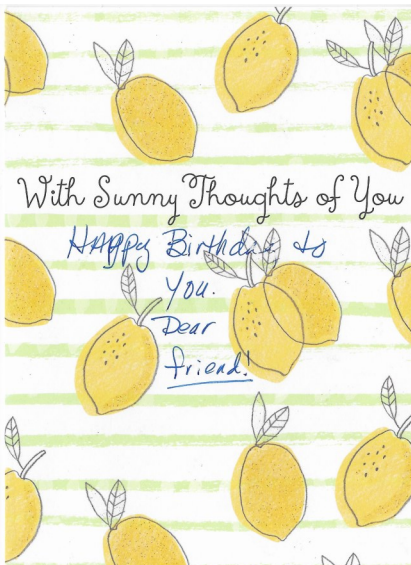 With Sunny Thoughts of You
Happy Birthday to
You.
Dear
friend!